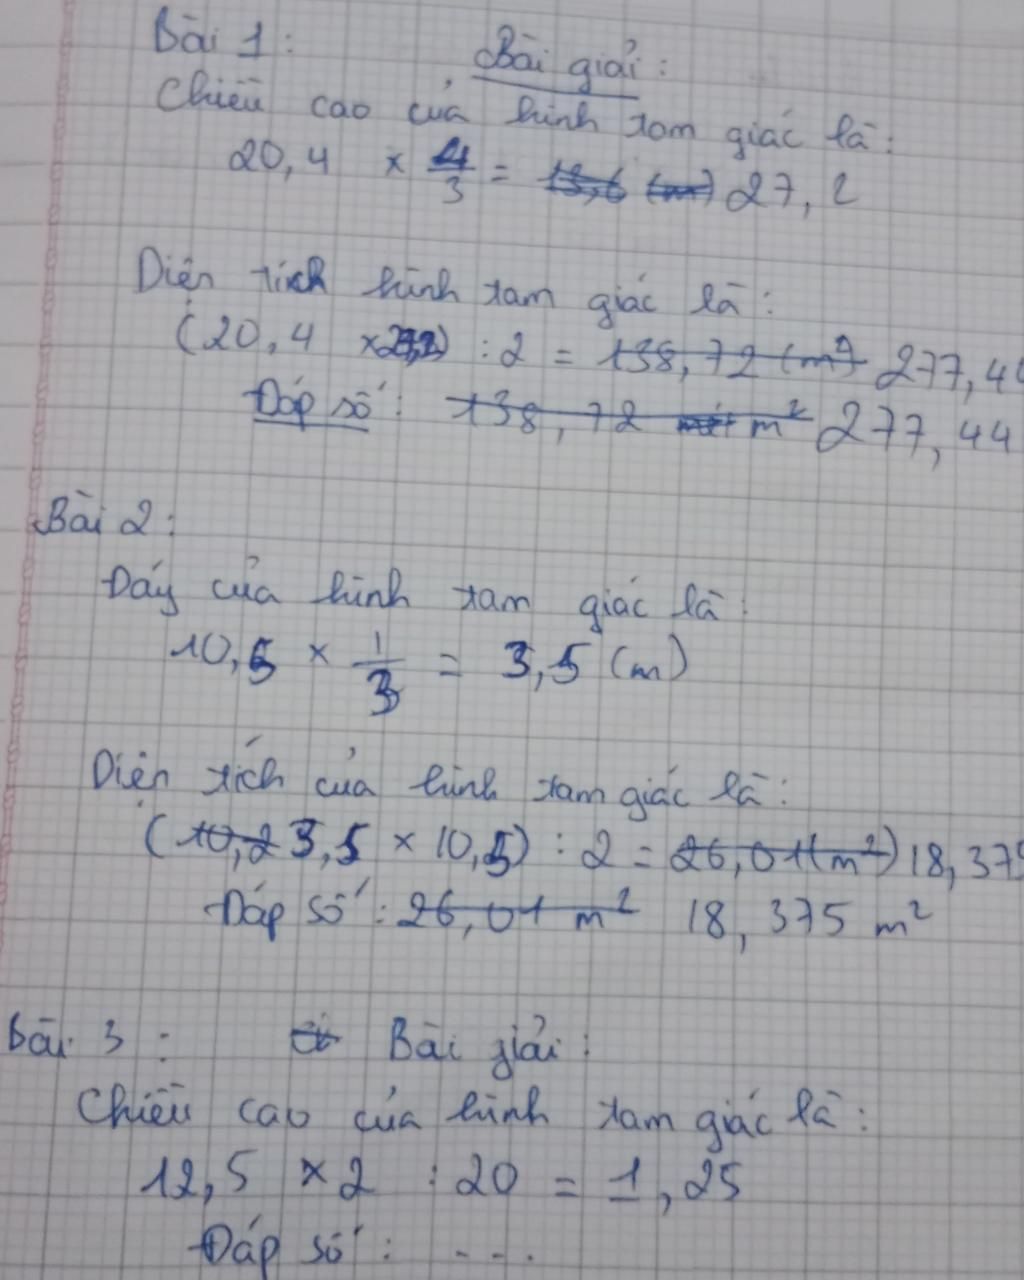 Bài 1:
Bài giải:
Chiều cao của hình tam giác là:
20,4 × 4/3 = 13,6 (m) 27,2
Diện tích hình tam giác là:
(20,4 ×27,2) : 2 = 138,72 (m²) 277,44
Đáp số: 138,72 m² 277,44
Bài 2:
Đáy của hình tam giác là:
10,5 × 1/3 = 3,5 (m)
Diện tích của hình tam giác là:
(10,2 3,5 × 10,5) : 2 = 26,01 (m²) 18,375
Đáp số: 26,01 m² 18,375 m²
Bài 3: Bài giải:
Chiều cao của hình tam giác là:
12,5 ×2 : 20 = 1,25
Đáp số: ...